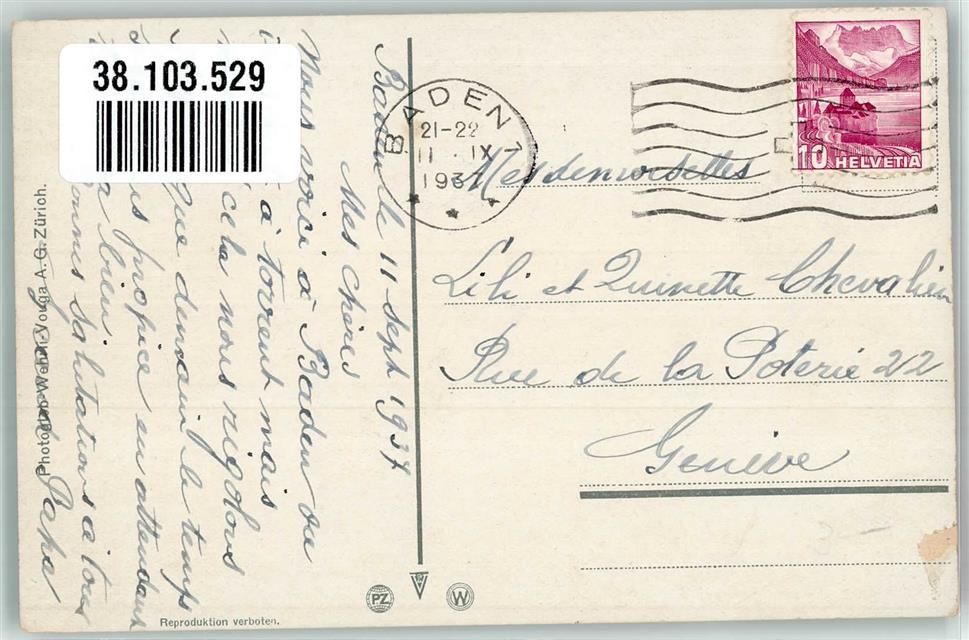 38.103.529
Baden le 11 sept 1937
Mes chères
Nous voici à Baden ou
a torrent mais
cela nous rigolons
que demain le temps
propice en attendant
bien
Bonnes salutations à tous
Papa
Photoglob-Wehrli-Vouga A. G. Zürich.
Reproduktion verboten.
PZ
V
W
BADEN 1
21-22
11. IX
193
10 HELVETIA
Mesdemoiselles
Lili et Quinette Chevalier
Rue de la Poterie 22
Genève